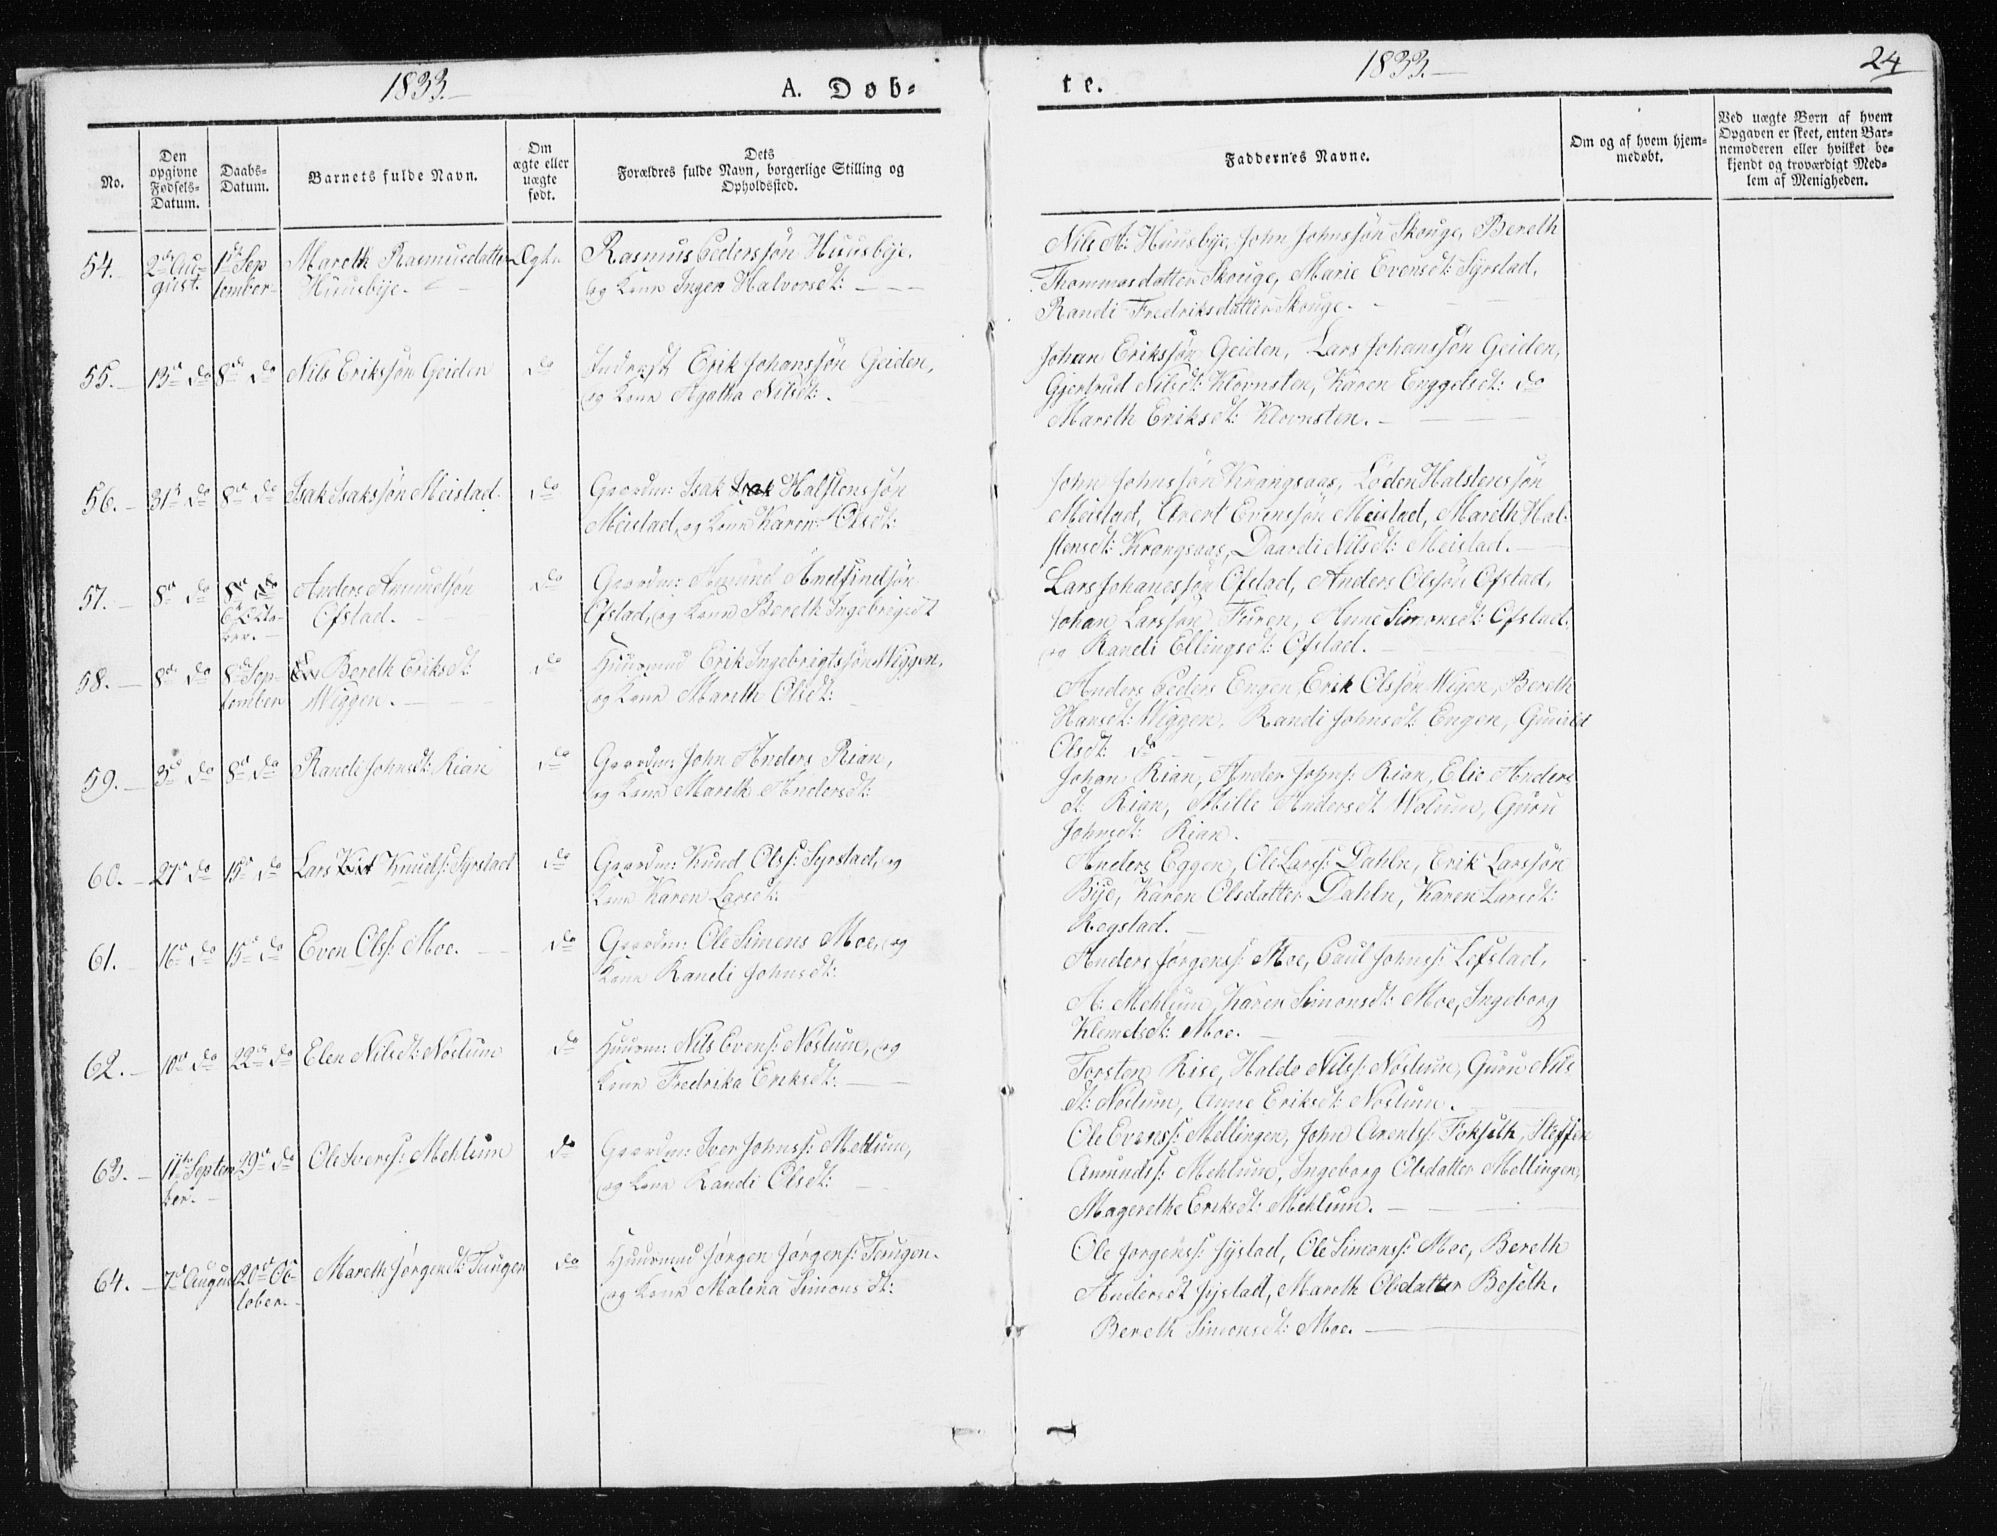 1833.
A. Døb-
te.
1833.
24
No.
Den opgivne Fødsels-Datum.
Daabs-Datum.
Barnets fulde Navn.
Om ægte eller uægte født.
Dets Forældres fulde Navn, borgerlige Stilling og Opholdssted.
Faddernes Navne.
Om og af hvem hjem-medøbt.
Ved uægte Børn af hvem Opgaven er skeet, enten Bar-nemoderen eller hvilket be-kjendt og troværdigt Med-lem af Menigheden.
54. 2de August 1ste September Mareth Rasmusdatter Ægte Rasmus Pederssøn Huusbye,
Huusbye. og Kone Inger Halvorsdt:
Nils A: Huusbye, John Johnssøn Skouge, Bereth
Thommasdatter Skouge, Marie Evensdt: Syrstad,
Randi Fredriksdatter Skouge.
55. 13de do 8de do Nils Erikssøn Geiden do Inderst Erik Johanssøn Geiden,
og Kone Agatha Nilsdt:
Johan Erikssøn Geiden, Lars Johanssøn Geiden,
Gjertrud Nilsdt: Klovnsten, Karen Enggelsdt: do
Mareth Eriksdt: Klovnsten.
56. 31te do 8de do Isak Isakssøn Meistad. do Gaardm: Isak Halstenssøn
Meistad, og Kone Karen Olsdt:
John Johnssøn Krangsaas, Loden Halstenssøn
Meistad, Arent Evenssøn Meistad, Mareth Hal-
stensdt: Krangsaas, Daardi Nilsdt: Meistad.
57. 8de do 6te October. Anders Amundsøn do Gaardm: Amund Andfindsøn
Ofstad. Ofstad, og Kone Bereth Ingebrigtsdt
Lars Johanssøn Ofstad, Anders Olssøn Ofstad,
Johan Larssøn Furen, Anne Simonsdt: Ofstad,
og Randi Ellingsdt: Ofstad.
58. 8de do 8de September Bereth Eriksdt: do Huusmand Erik Ingebrigtssøn Wiggen,
Wiggen. og Kone Mareth Olsdt:
Anders Peders Engen, Erik Olssøn Wigen, Bereth
Hansdt: Wiggen, Randi Johnsdt: Engen,
Olsdt: do
59. 3de do 8de do Randi Johnsdt: Rian do Gaardm: John Anders Rian,
og Kone Mareth Andersdt:
Johan Rian, Anders Johns: Rian, Elie Anders
dt: Rian, Mille Andersdt Wolum, Guru
Johnsdt: Rian.
60. 27de do 15de do Lars Knuds: Syrstad do Gaardm: Knud Olss: Syrstad, og
Kone Karen Larsdt:
Anders Eggen, Ole Larss: Dahln, Erik Larssøn
Bye, Karen Olsdatter Dahln, Karen Larsdt:
Regstad.
61. 16de do 15de do Even Ols: Moe. do Gaardm: Ole Simens Moe, og
Kone Randi Johnsdt:
Anders Jørgens: Moe, Paul Johnss: Lefstad,
A: Mehlum, Karen Simonsdt: Moe, Ingeborg
Klemetsdt: Moe.
62. 10de do 22de do Elen Nilsdt: Nøstum do Huusm: Nils Evens: Nøstum, og
Kone Fredrika Eriksdt:
Torsten Rise, Haldo Nilss: Nøstum, Guru Nils
dt: Nøstum, Anne Eriksdt: Nøstum.
63. 11te September. 29de do Ole Iverss: Mehlum do Gaardm: Iver Johnss: Mehlum,
og Kone Randi Olsdt:
Ole Evenss: Mellingen, John Arents: Fokseth, Steffen
Amundss: Mehlum, Ingeborg Olsdatter Mellingen,
Magerethe Eriksdt: Mehlum.
64. 7de August 20de October. Mareth Jørgensdt: do Huusmand Jørgen Jørgens:
og Kone Malena Simonsdt:
Ole Jorgenss: Jystad, Ole Simonss: Moe, Bereth
Andersdt Jystad, Mareth Olsdatter Beseth,
Bereth Simonsdt: Moe.